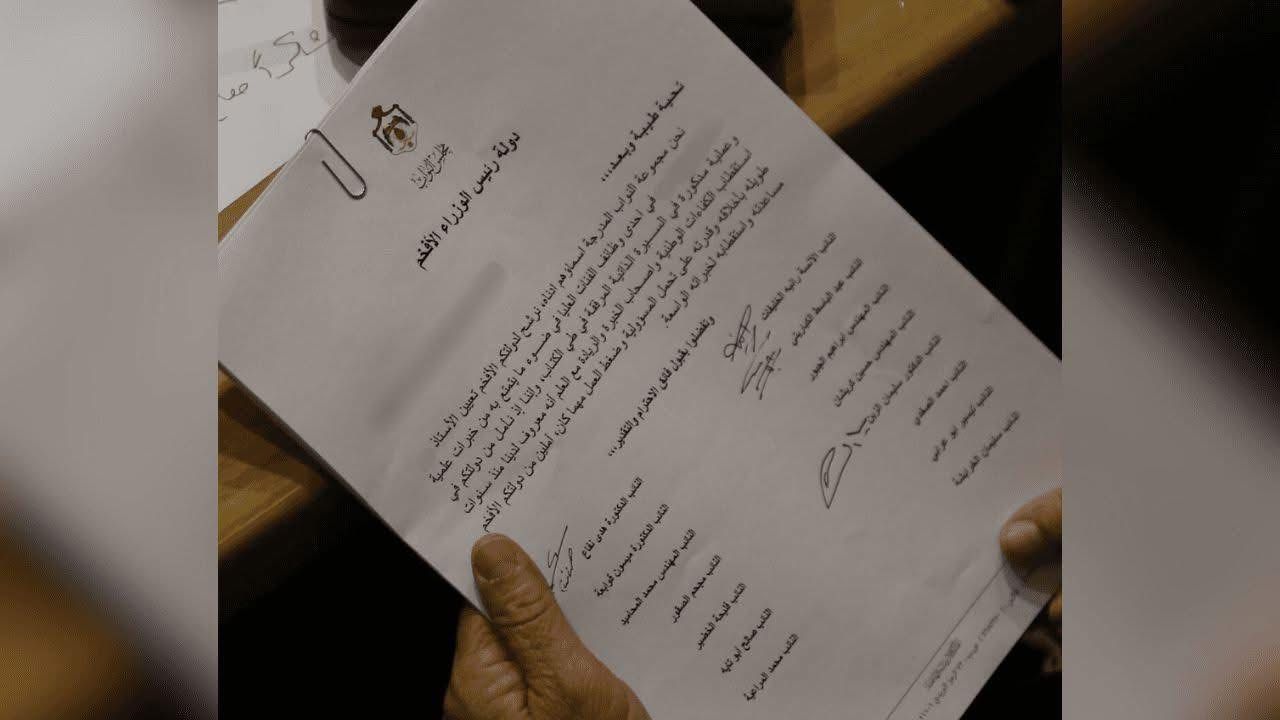 مجلس النواب
دولة رئيس الوزراء الأفخم
تحية طيبة وبعد...
نحن مجموعة النواب المدرجة اسماؤهم ادناه، نرشح لدولتكم الأفخم تعيين الأستاذ
في احدى وظائف الفئات العليا في ضوء ما يتمتع به من خبرات علمية
وعملية مذكورة في السيرة الذاتية المرفقة في طي الكتاب، واننا إذ نأمل من دولتكم في
استقطاب الكفاءات الوطنية واصحاب الخبرة والريادة مع العلم أنه معروف لدينا منذ سنوات
طويله بأخلاقه وقدرته على تحمل المسؤولية وضغط العمل مهما كان، آملين من دولتكم الأفخم
مساعدته واستقطابه لخبراته الواسعة.
وتفضلوا بقبول فائق الاحترام والتقدير...
النائب الآنسة رانيه الخليفات
النائب عبد الباسط الكباريتي
النائب المهندس ابراهيم الجبور
النائب المهندس حسين كريشان
النائب الدكتور سليمان الزبن
النائب احمد الصفدي
النائب تيسير ابو عرابي
النائب سليمان الغرابية
النائب الدكتورة هدى نفاع
النائب الدكتورة ميسون قوابعة
النائب المهندس محمد المحاسيد
النائب مجحم الصقور
النائب فليحة الخضير
النائب صالح ابو تايه
النائب محمد المراعية